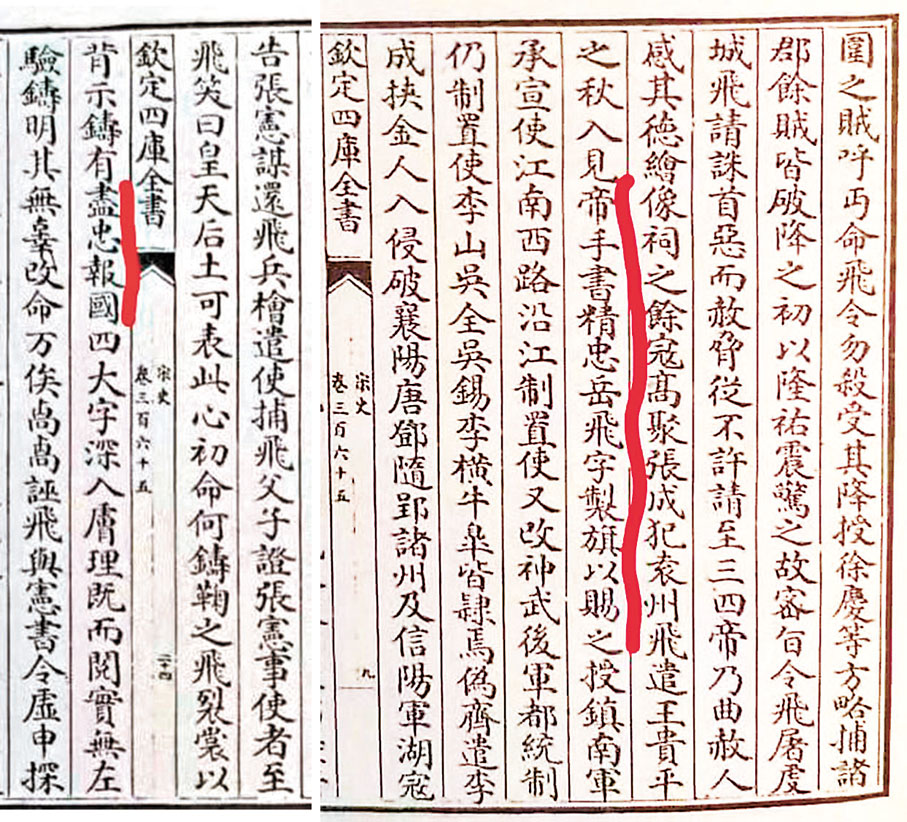 圍之賊呼丐命飛令勿殺受其降授徐慶等方略捕諸
郡餘賊皆破降之初以隆祐震驚之故密旨令飛屠虔
城飛請誅首惡而赦脅從不許請至三四帝乃曲赦人
感其德繪像祠之餘寇髙聚張成犯袁州飛遣王貴平
之秋入見帝手書精忠岳飛字製旗以賜之授鎮南軍
承宣使江南西路沿江制置使又改神武後軍都統制
仍制置使李山吳全吳錫李橫牛臯皆隸焉偽齊遣李
成挾金人入侵破襄陽唐鄧隨郢諸州及信陽軍湖寇
欽定四庫全書
宋史
卷三百六十五
九
告張憲謀還飛兵檜遣使捕飛父子證張憲事使者至
飛笑曰皇天后土可表此心初命何鑄鞫之飛裂裳以
欽定四庫全書
宋史
卷三百六十五
二十四
背示鑄有盡忠報國四大字深入膚理既而閱實無左
驗鑄明其無辜改命万俟卨卨誣飛與憲書令虛申探